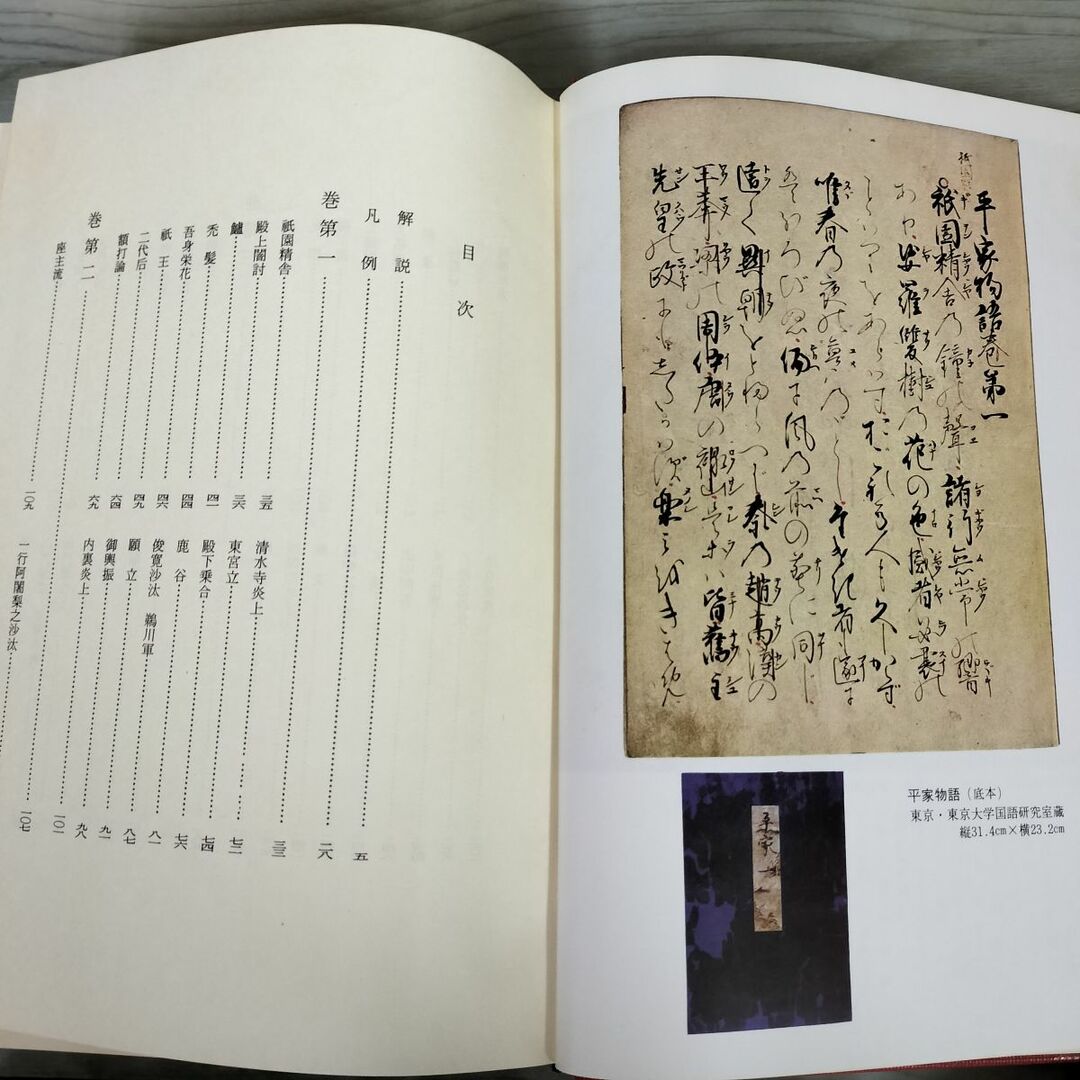 平家物語巻第一
祇園精舎乃鐘の聲諸行無常の響
あり娑羅雙樹乃花の色盛者必衰の
ことはりをあらはすおごれる人も久しからず
唯春乃夜の夢のごとしたけき者も遂に
はほろびぬ偏に風の前の塵に同じ
遠く異朝をとぶらへば秦の趙高漢の
王莽梁の周伊唐の禄山是等は皆舊主
先皇の政にもしたがはず楽しみをきはめ
平家物語（底本）
東京・東京大学国語研究室蔵
縦31.4cm×横23.2cm
目次
解説 五
凡例 二八
巻第一 三三
祇園精舎 三五
殿上闇討 三六
鱸 四一
禿髪 四四
吾身栄花 四六
祇王 四九
二代后 六四
額打論 六九
清水寺炎上 七二
東宮立 七四
殿下乗合 七六
鹿谷 八一
俊寛沙汰 鵜川軍 八七
願立 九一
御輿振 九八
内裏炎上 一〇一
巻第二 一〇七
座主流 一〇九
一行阿闍梨之沙汰